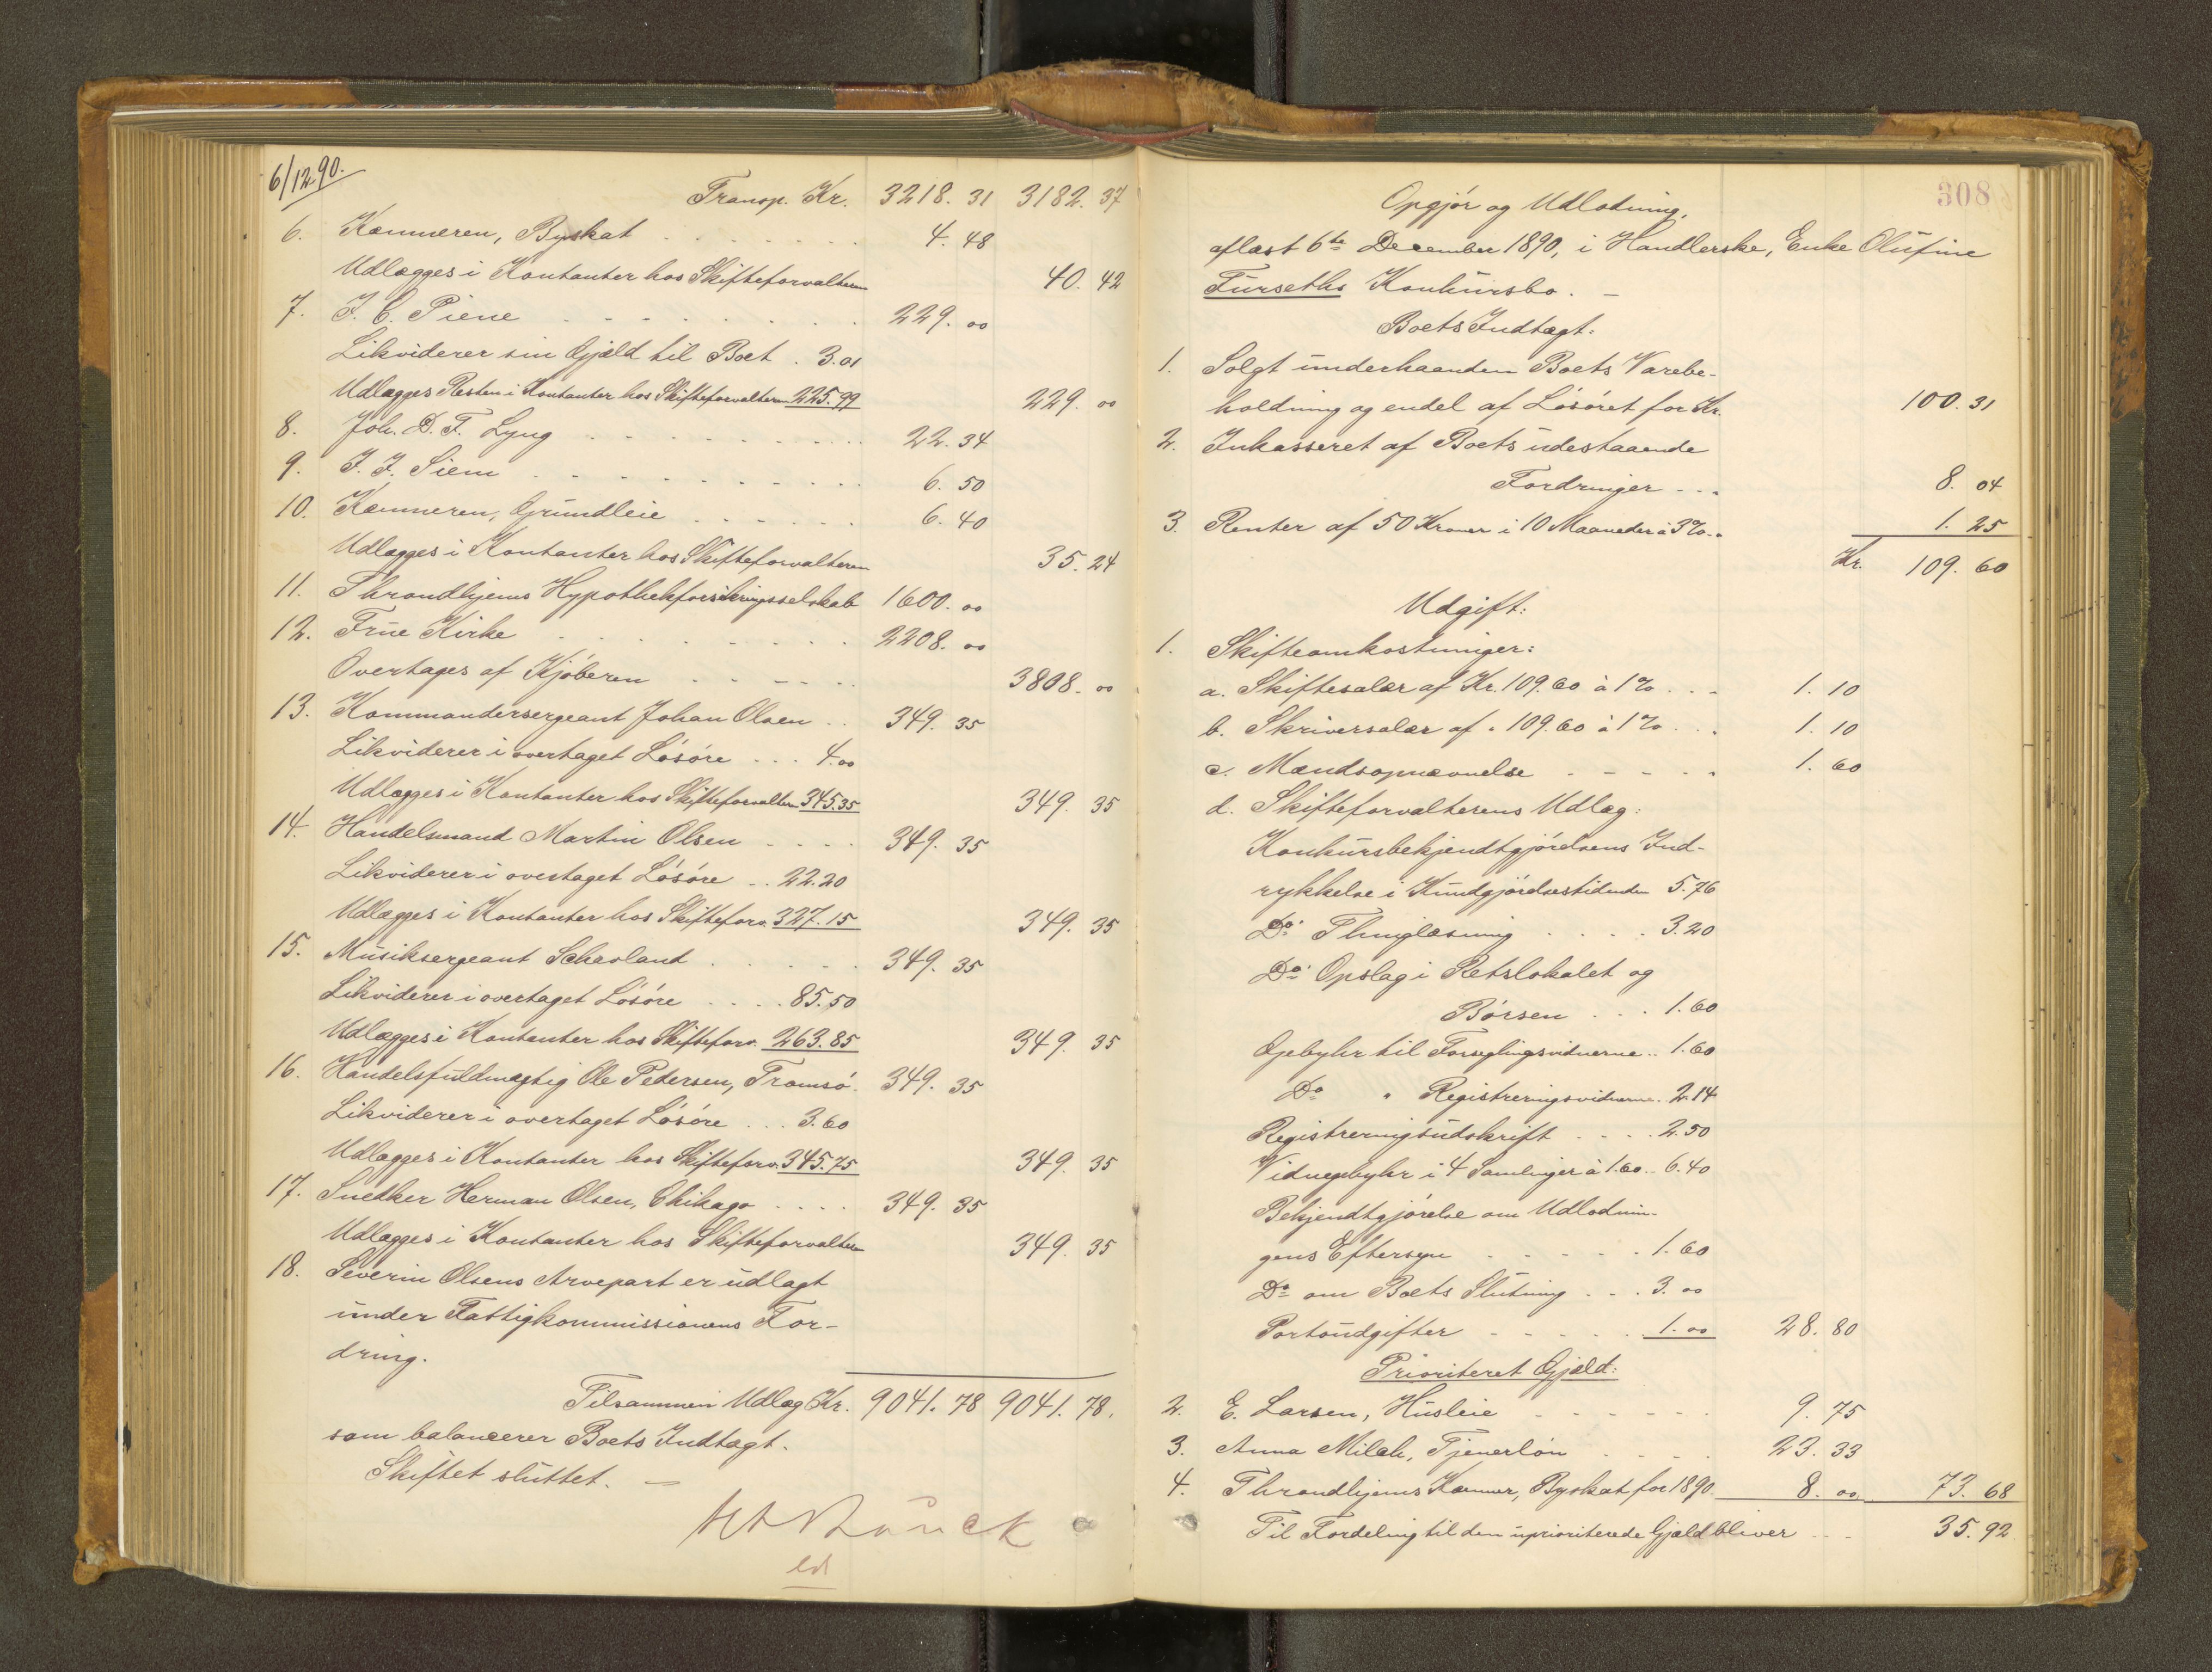 6/12 90.
Transp. Kr. 3218. 31 3182. 37
6. Kæmneren, Byskat . . . . . . . 4. 48
Udlægges i Kontanter hos Skifteforvalteren 40. 42
7. I. C. Piene . . . . . . . . . 229. 00
Likviderer sin Gjæld til Boet . 3.01
Udlægges Resten i Kontanter hos Skifteforvalteren 225.99 229. 00
8. Joh. D. F. Lyng . . . . . . . . 22. 34
9. I. J. Siem . . . . . . . . . 6. 50
10. Kæmneren, Grundleie . . . . . . 6. 40
Udlægges i Kontanter hos Skifteforvalteren 35. 24
11. Throndhjems Hypothekforsikringsselskab 1600. 00
12. Frue Kirke . . . . . . . . 2208. 00
Overtages af Kjøberen . . . . . 3808. 00
13. Kommandersergeant Johan Olsen . . 349. 35
Likviderer i overtaget Løsøre . . . 4.00
Udlægges i Kontanter hos Skifteforvalteren 345.35 349. 35
14. Handelsmand Martin Olsen . . . . 349. 35
Likviderer i overtaget Løsøre . . 22.20
Udlægges i Kontanter hos Skifteforv. 327.15 349. 35
15. Musiksergeant Scharland . . . . . 349. 35
Likviderer i overtaget Løsøre . . . . 85.50
Udlægges i Kontanter hos Skifteforv. 263.85 349. 35
16. Handelsfuldmægtig Ole Pedersen, Tromsø. 349. 35
Likviderer i overtaget Løsøre . . . 3.60
Udlægges i Kontanter hos Skifteforv. 345.75 349. 35
17. Snedker Herman Olsen, Chikago . . . . 349. 35
Udlægges i Kontanter hos Skifteforvalteren 349. 35
18. Severin Olsens Arvepart er udlagt
under Fattigkommissionens For-
dring.
Tilsammen Udlæg Kr. 9041. 78 9041. 78.
som balancerer Boets Indtægt.
Skiftet sluttet. —
308
Opgjør og Udlodning,
aflæst 6te December 1890, i Handlerske, Enke Olufine
Furseths Konkursbo. —
Boets Indtægt:
1. Solgt underhaanden Boets Varebe-
holdning og endel af Løsøret for Kr. 100. 31
2. Inkasseret af Boets udestaaende
Fordringer - - " 8. 04
3. Renter af 50 Kroner i 10 Maaneder à 3% . " 1. 25
Kr. 109. 60
Udgift:
1. Skifteomkostninger:
a. Skiftesalær af Kr. 109.60 à 1% . . . 1. 10
b. Skriversalær af " 109.60 à 1% . . . 1. 10
c. Mændsopnævnelse - - - - " 1. 60
d. Skifteforvalterens Udlæg:
Konkursbekjendtgjørelsens Ind-
rykkelse i Kundgjørelsestidenden 5.76
Do Thinglæsning . . . . 3.20
Do Opslag i Retslokalet og
Børsen . . . 1.60
Gebyhr til Forseglingsvidnerne . . 1.60
Do " Registreringsvidnerne . 2.14
Registreringsudskrift . . . . 2.50
Vidnegebyhr i 4 Samlinger à 1.60 . . 6.40
Bekjendtgjørelse om Udlodnin-
gens Eftersyn - - - - - . 1.60
Do om Boets Slutning . . . 3.00
Portoudgifter - - - - . 1.00 28. 80
Prioriteret Gjæld:
2. E. Larsen, Husleie - - - - - - 9. 75
3. Anna Milch, Tjenerløn . . . . 23. 33
4. Throndhjems Kæmner, Byskat for 1890 8. 00 73. 68
Til Fordeling til den uprioriterede Gjæld bliver - - - 35. 92